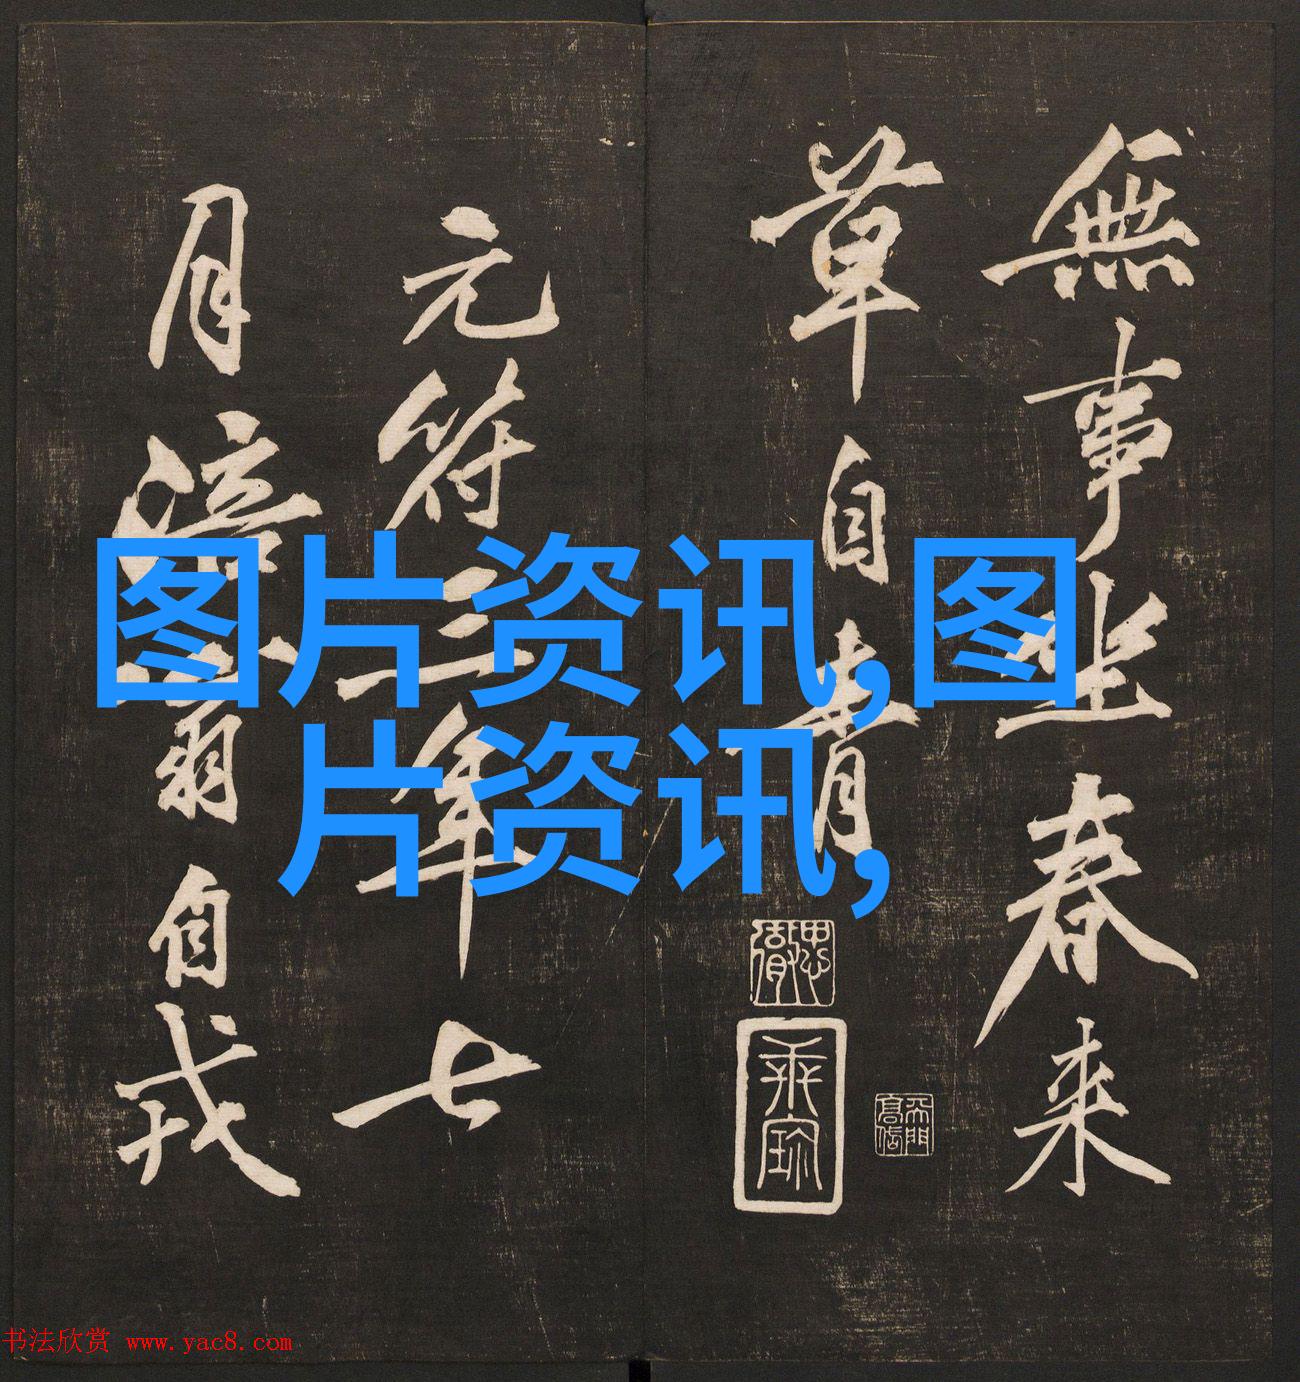 無事坐春来
草自青
元符三年七
月涪翁自戒
图片资讯,图
片资讯,
书法欣赏 www.yac8.com